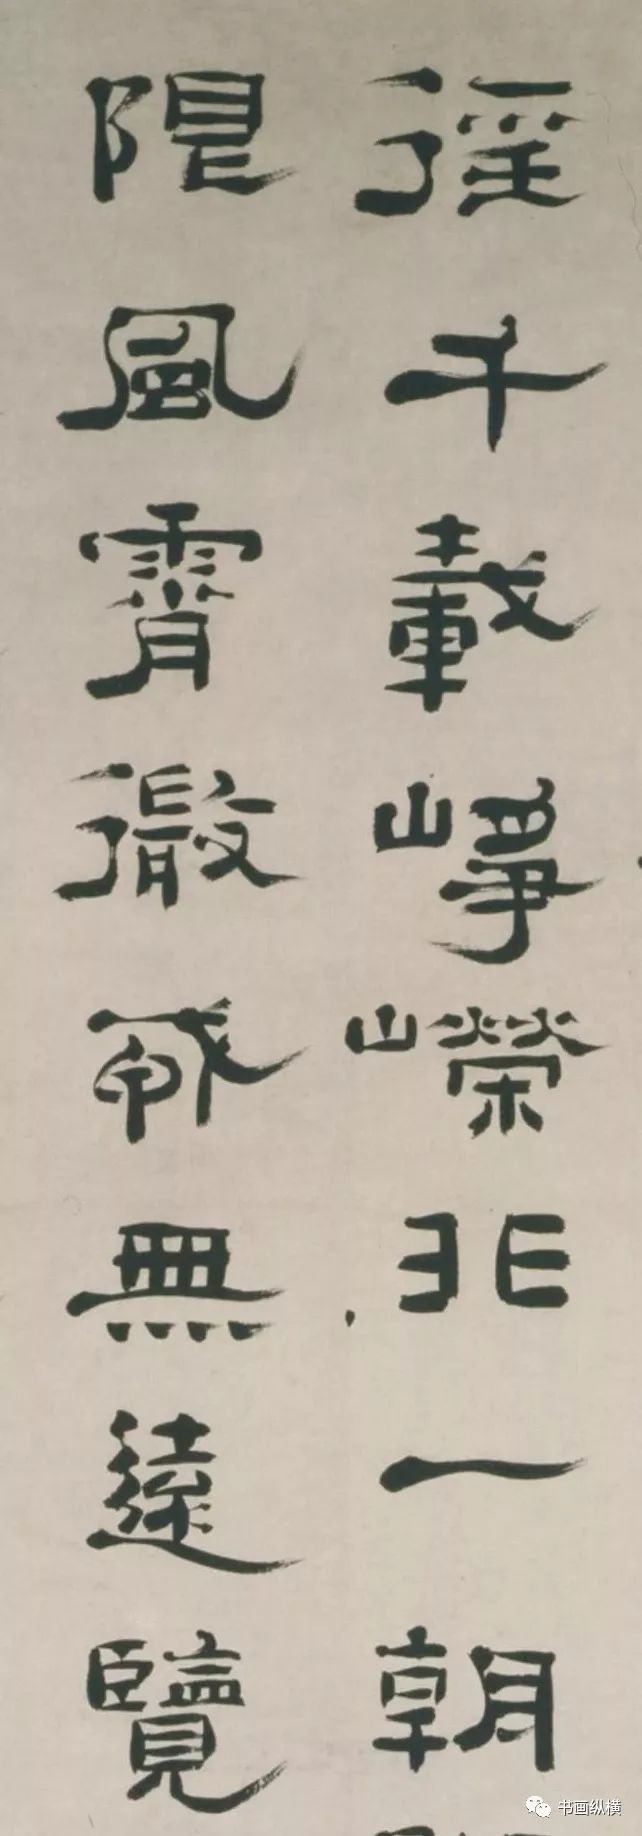 徑千載崢嶸非一朝
限風霄徹我無遠覽
书画纵横